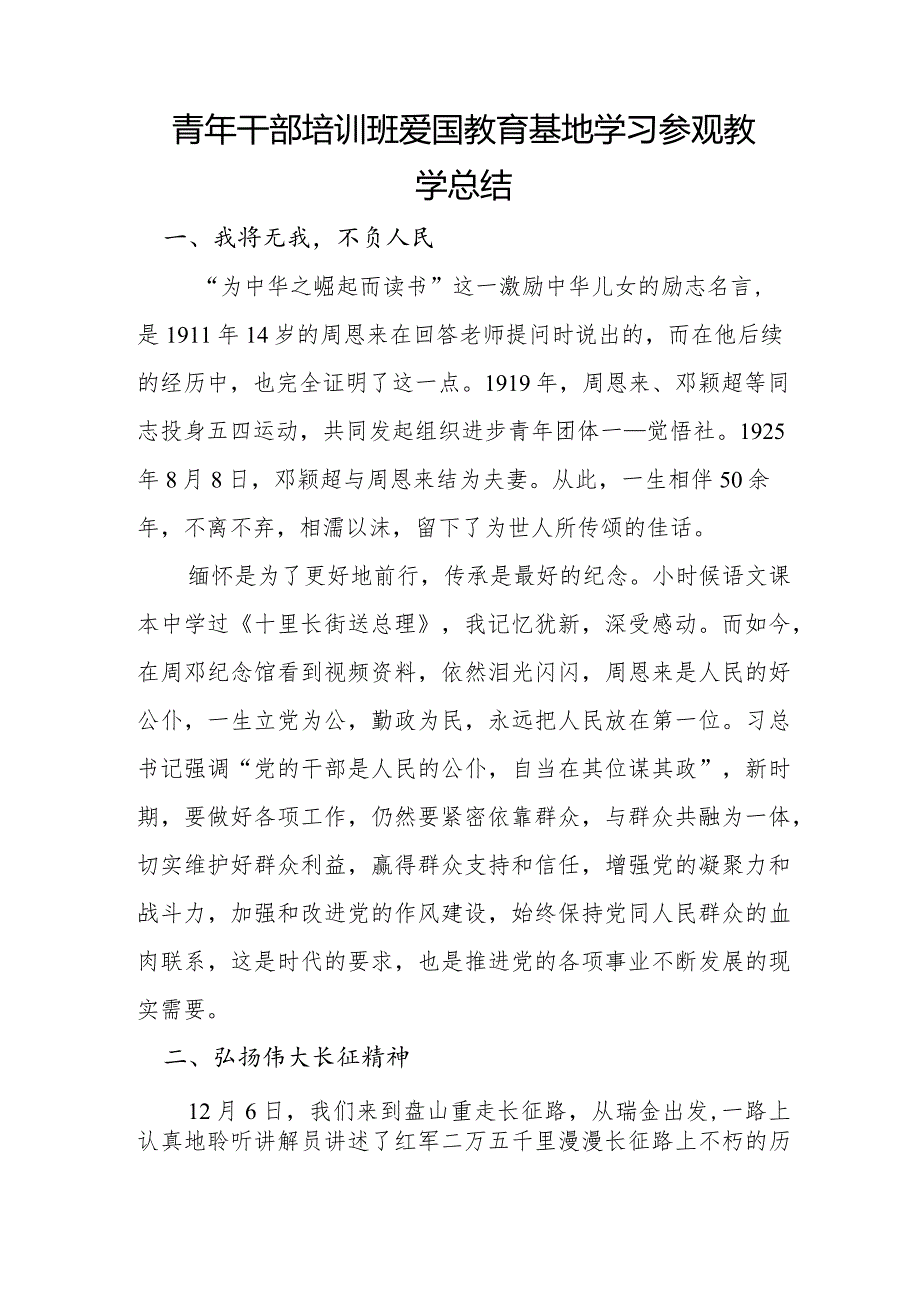 青年干部培训班爱国教育基地学习参观教
学总结
一、我将无我，不负人民
“为中华之崛起而读书”这一激励中华儿女的励志名言，
是1911年14岁的周恩来在回答老师提问时说出的，而在他后续
的经历中，也完全证明了这一点。1919年，周恩来、邓颖超等同
志投身五四运动，共同发起组织进步青年团体一—觉悟社。1925
年8月8日，邓颖超与周恩来结为夫妻。从此，一生相伴50余
年，不离不弃，相濡以沫，留下了为世人所传颂的佳话。
缅怀是为了更好地前行，传承是最好的纪念。小时候语文课
本中学过《十里长街送总理》，我记忆犹新，深受感动。而如今，
在周邓纪念馆看到视频资料，依然泪光闪闪，周恩来是人民的好
公仆，一生立党为公，勤政为民，永远把人民放在第一位。习总
书记强调“党的干部是人民的公仆，自当在其位谋其政”，新时
期，要做好各项工作，仍然要紧密依靠群众，与群众共融为一体，
切实维护好群众利益，赢得群众支持和信任，增强党的凝聚力和
战斗力，加强和改进党的作风建设，始终保持党同人民群众的血
肉联系，这是时代的要求，也是推进党的各项事业不断发展的现
实需要。
二、弘扬伟大长征精神
12月6日，我们来到盘山重走长征路，从瑞金出发,一路上
认真地聆听讲解员讲述了红军二万五千里漫漫长征路上不朽的历